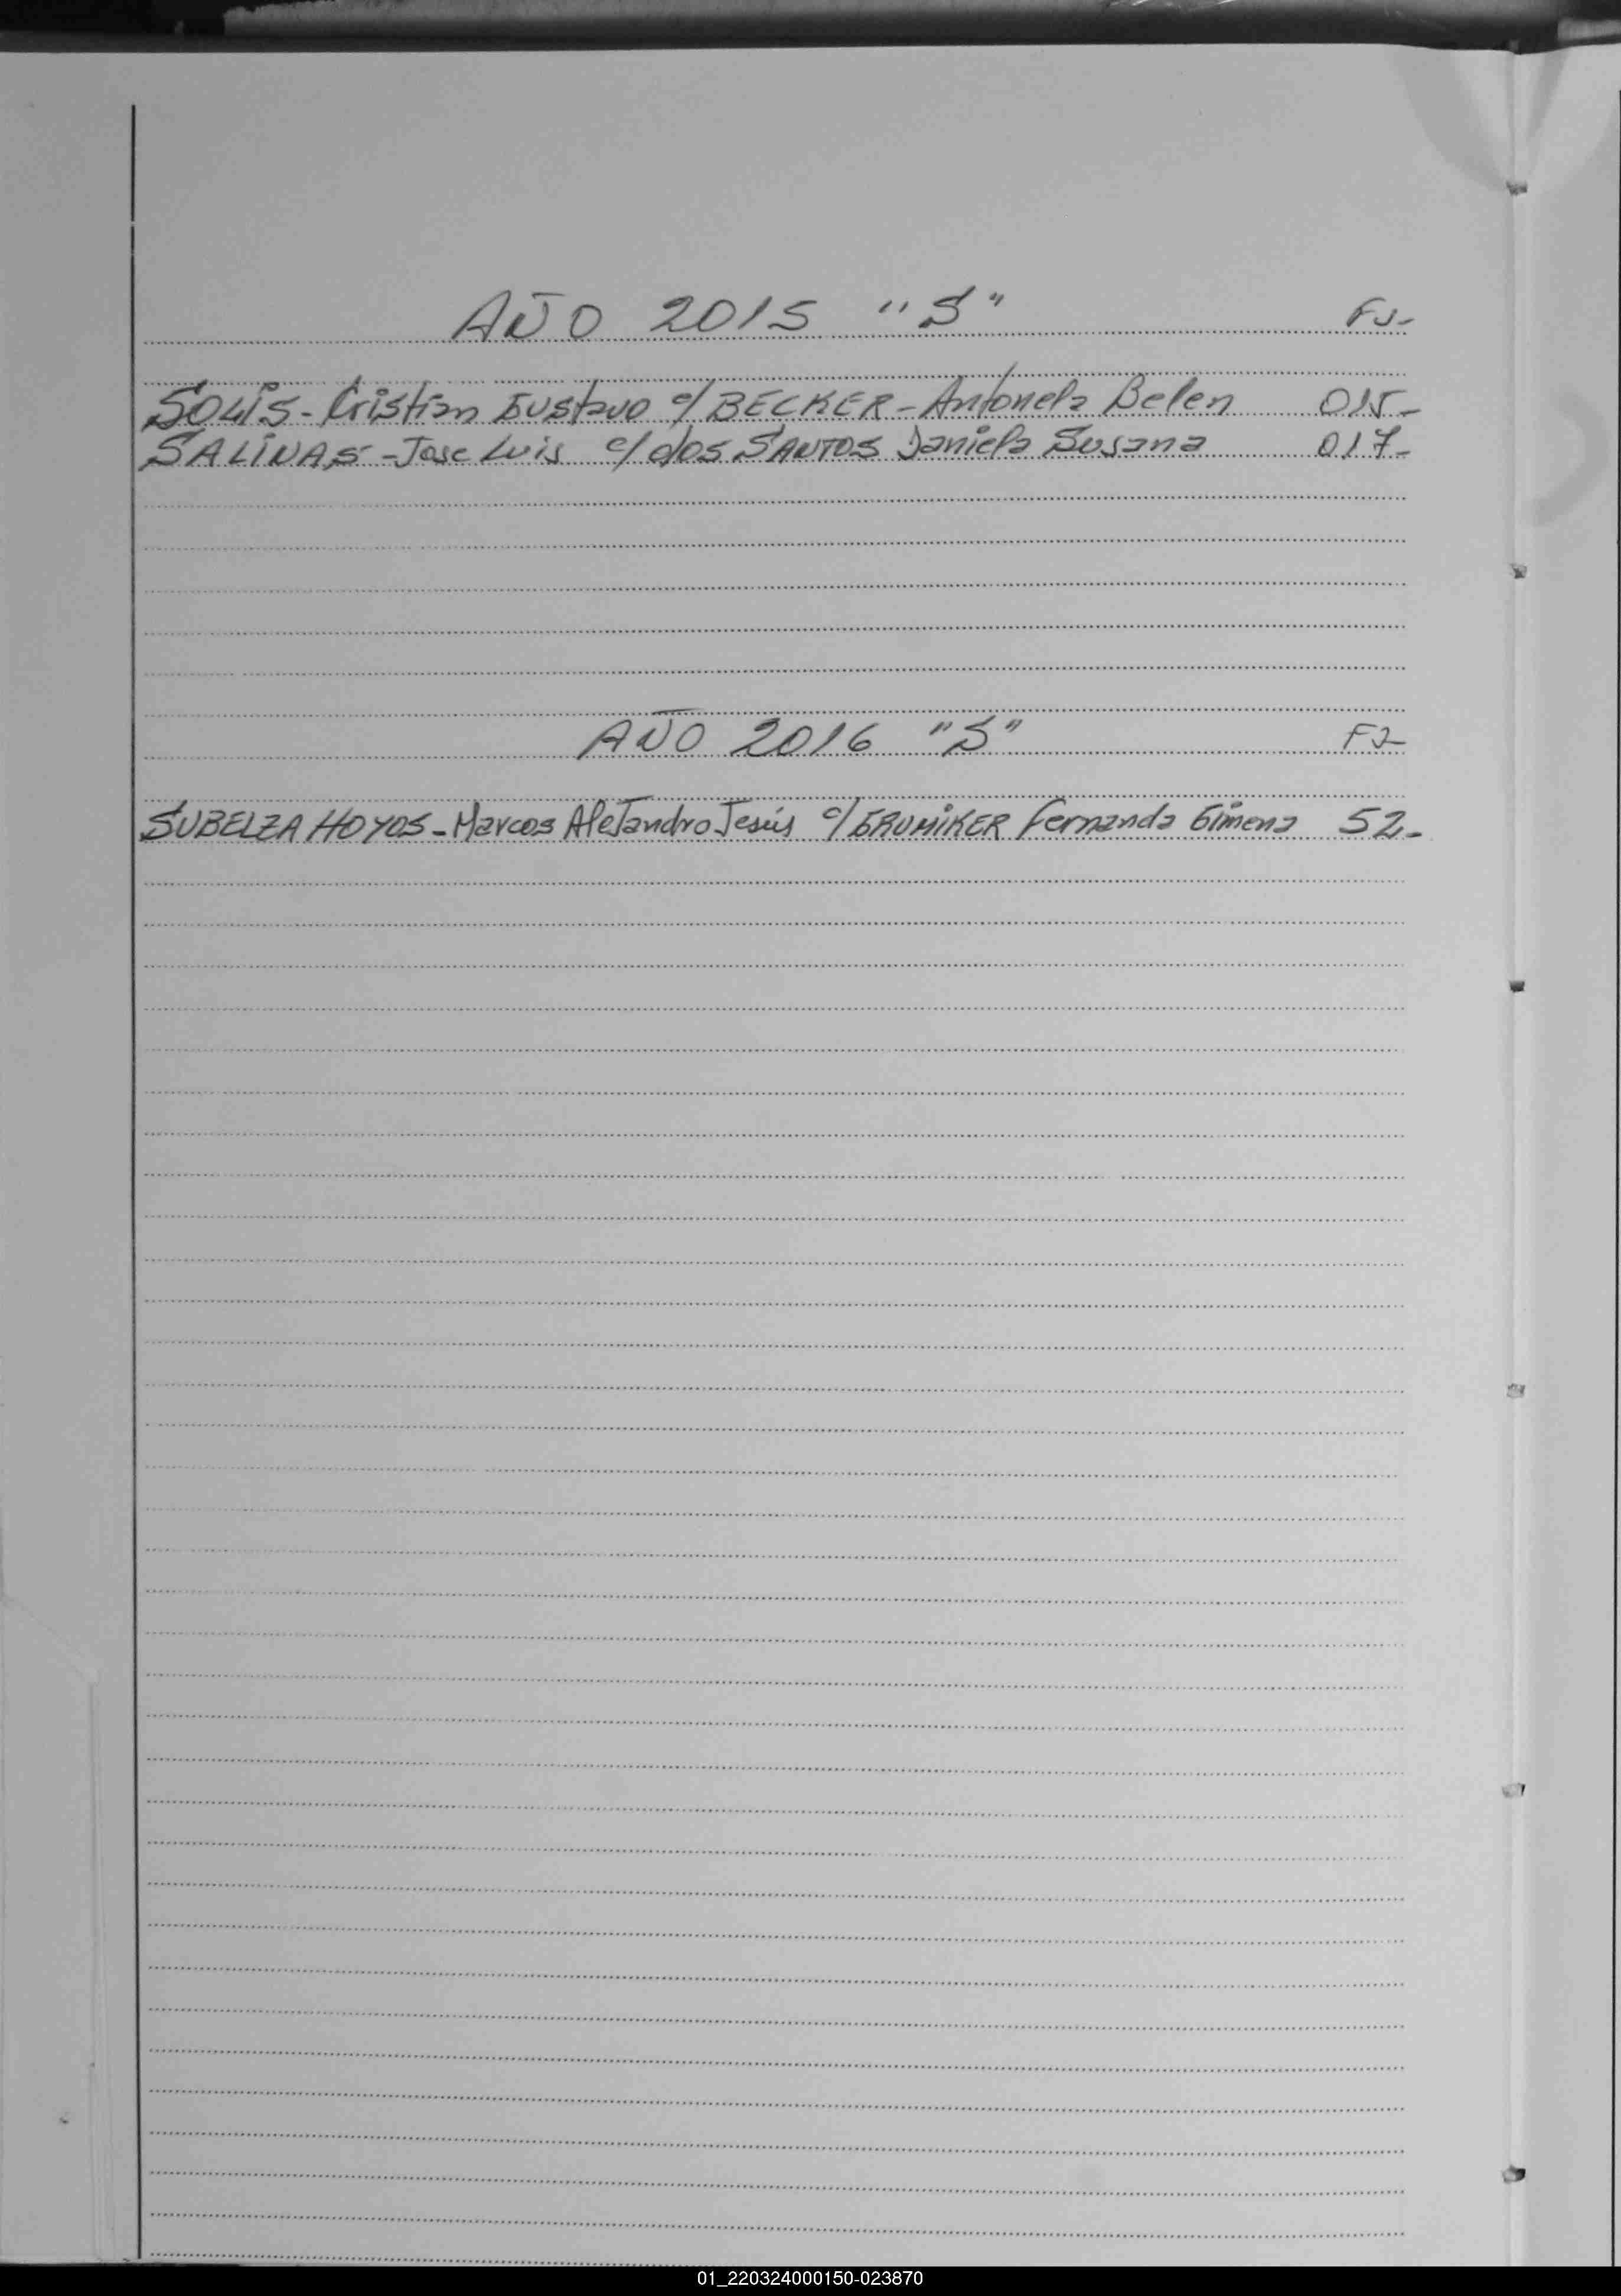 AÑO 2015 "S" FJ-
SOLIS - Cristian Gustavo c/ BECKER - Antonela Belen 015-
SALINAS - Jose Luis c/ dos SANTOS Daniela Susana 017-
AÑO 2016 "S" FJ-
SUBELZA HOYOS - Marcos Alejandro Jesús c/ GRUMIKER Fernanda Gimena 52-
01_220324000150-023870